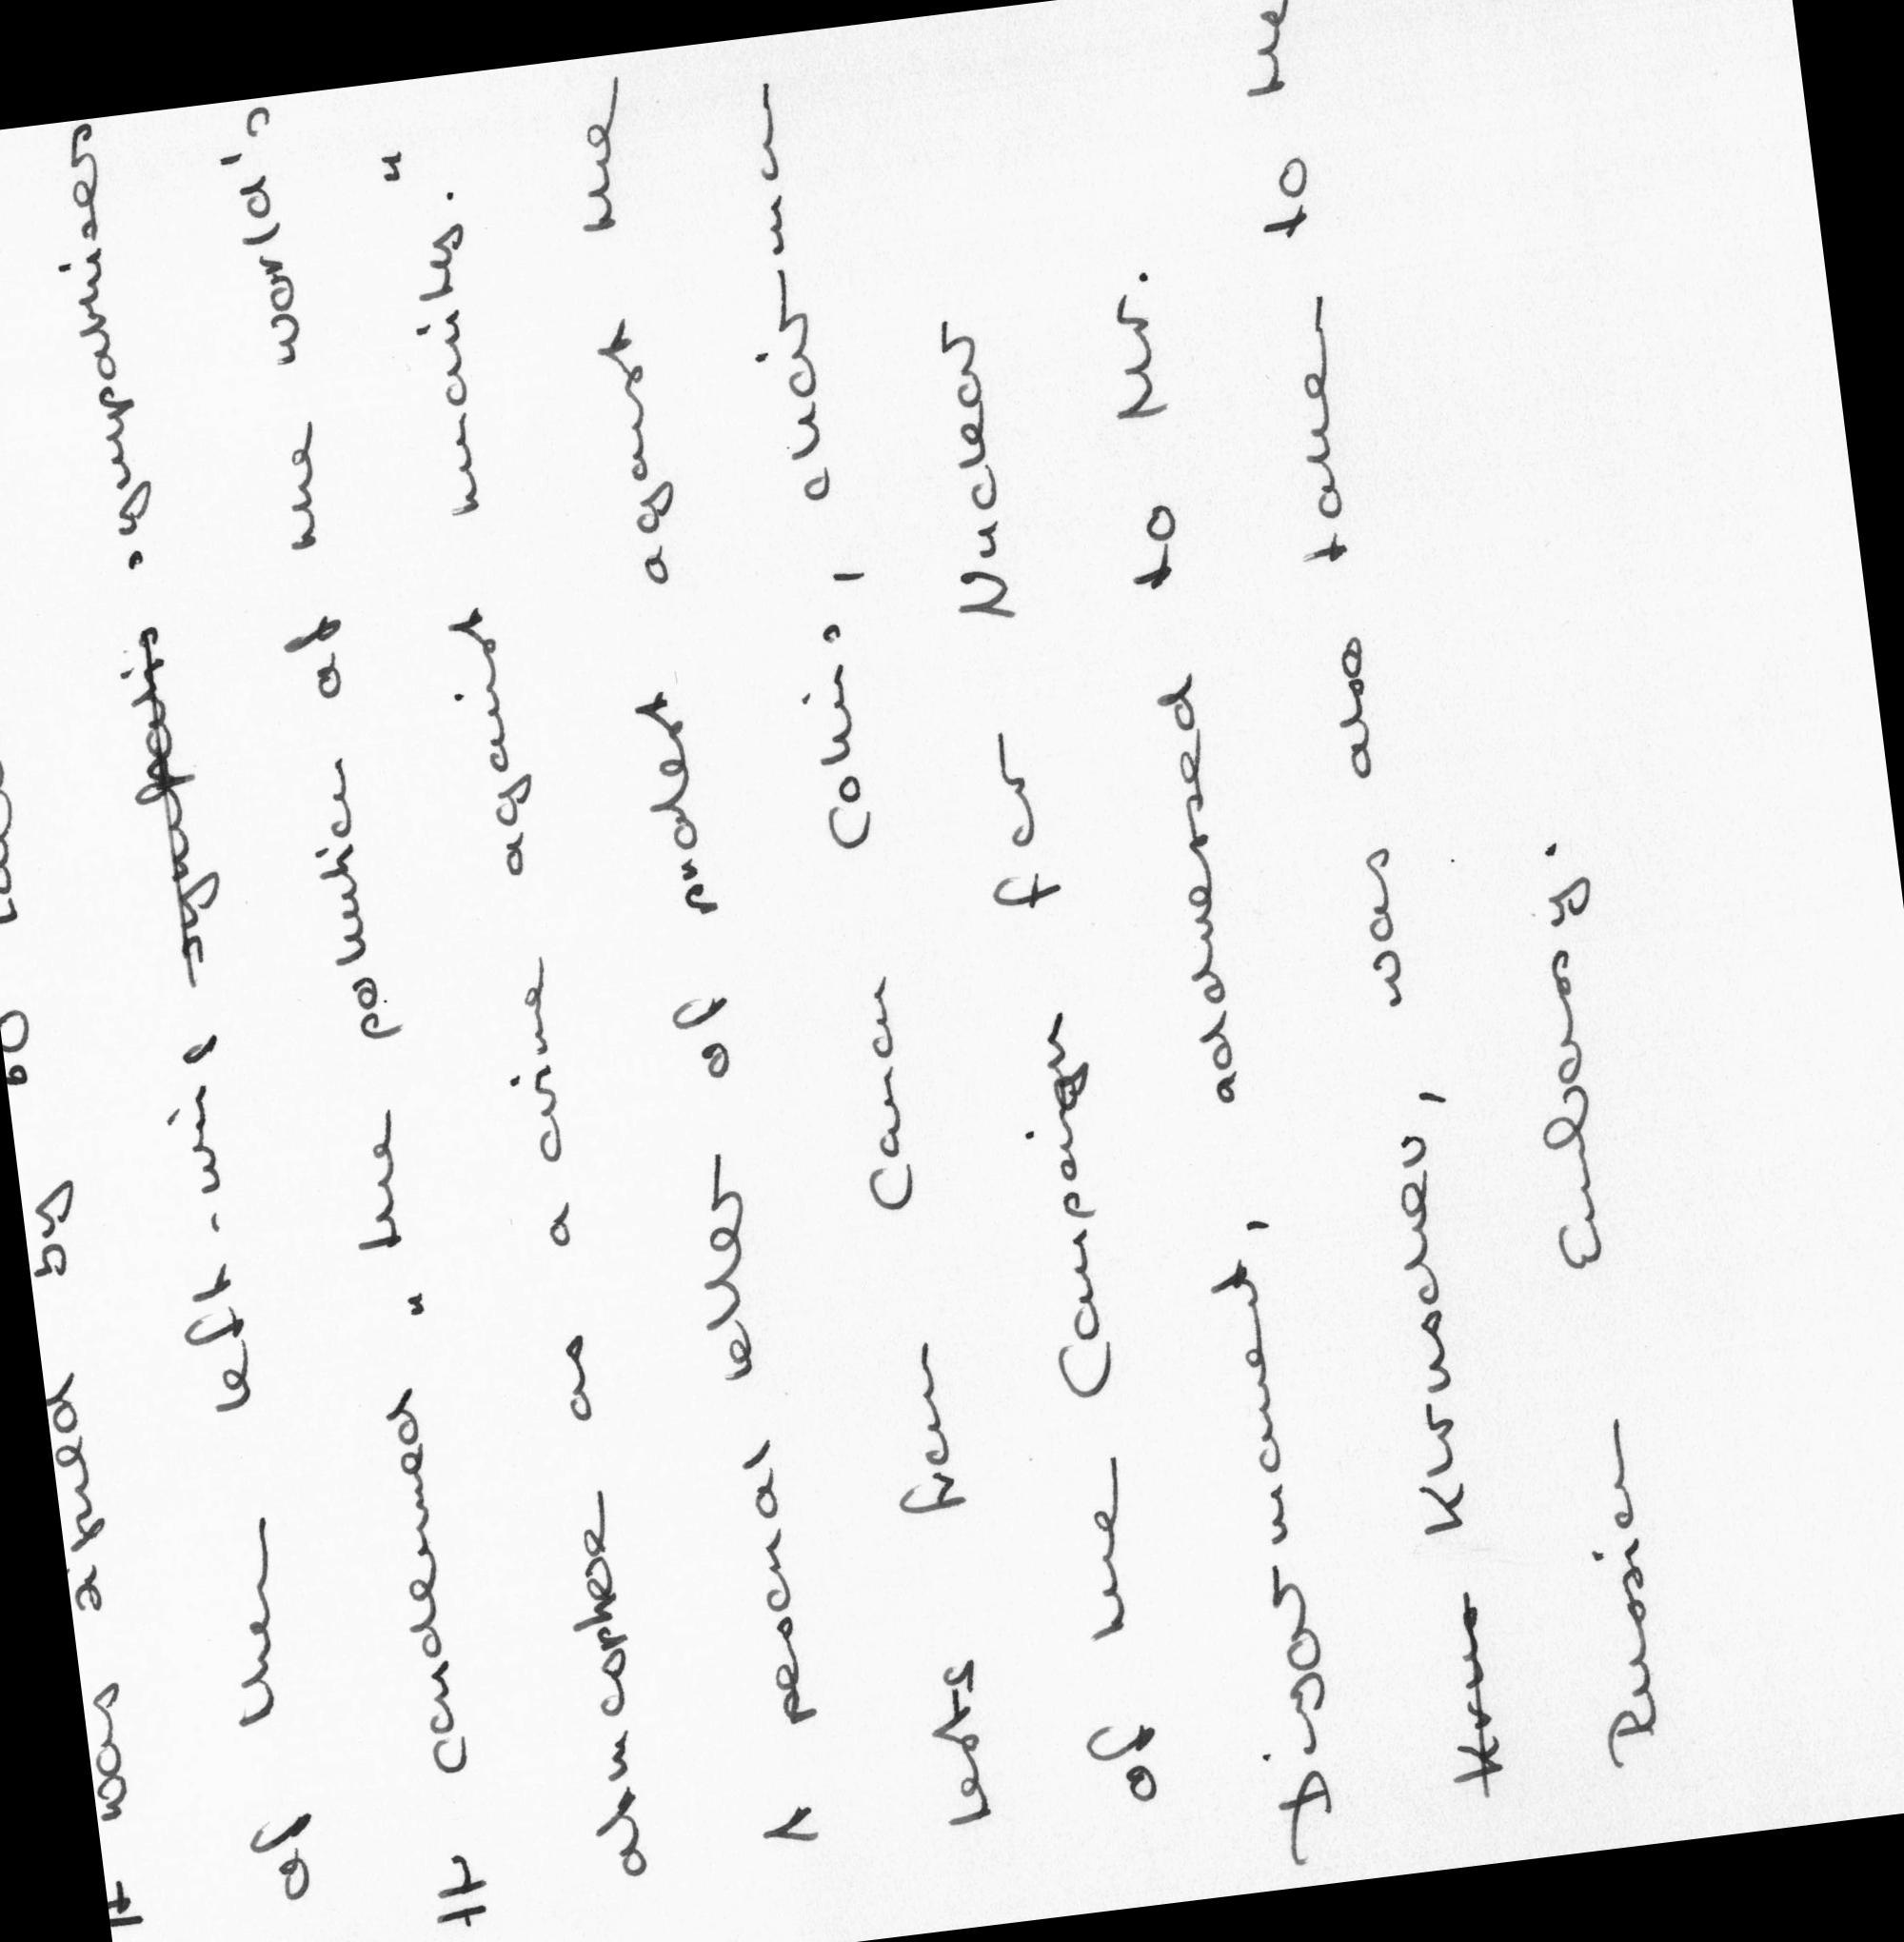 It was signed by 50
of them left-wing sympathisers
It condemned " the pollution of the world's
atmosphere as a crime against humanity."
A personal letter of protest against the
tests from Canon Collins, chairman
of the Campaign for Nuclear
Disarmament, addressed to Mr.
Khruschev, was also taken to the
Russian Embassy.